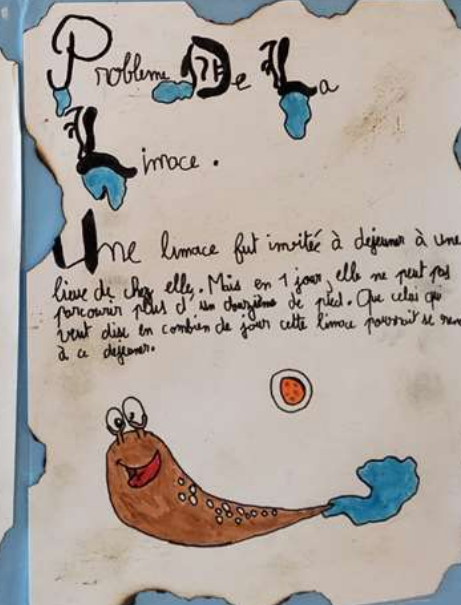 Probleme De La
Limace.
Une limace fut invitée à dejeuner à une
lieue de chez elle. Mais en 1 jour, elle ne peut pas
parcourir plus d'un douzième de pied. Que celui qui
veut dise en combien de jour cette limace pourrait se
à ce dejeuner.